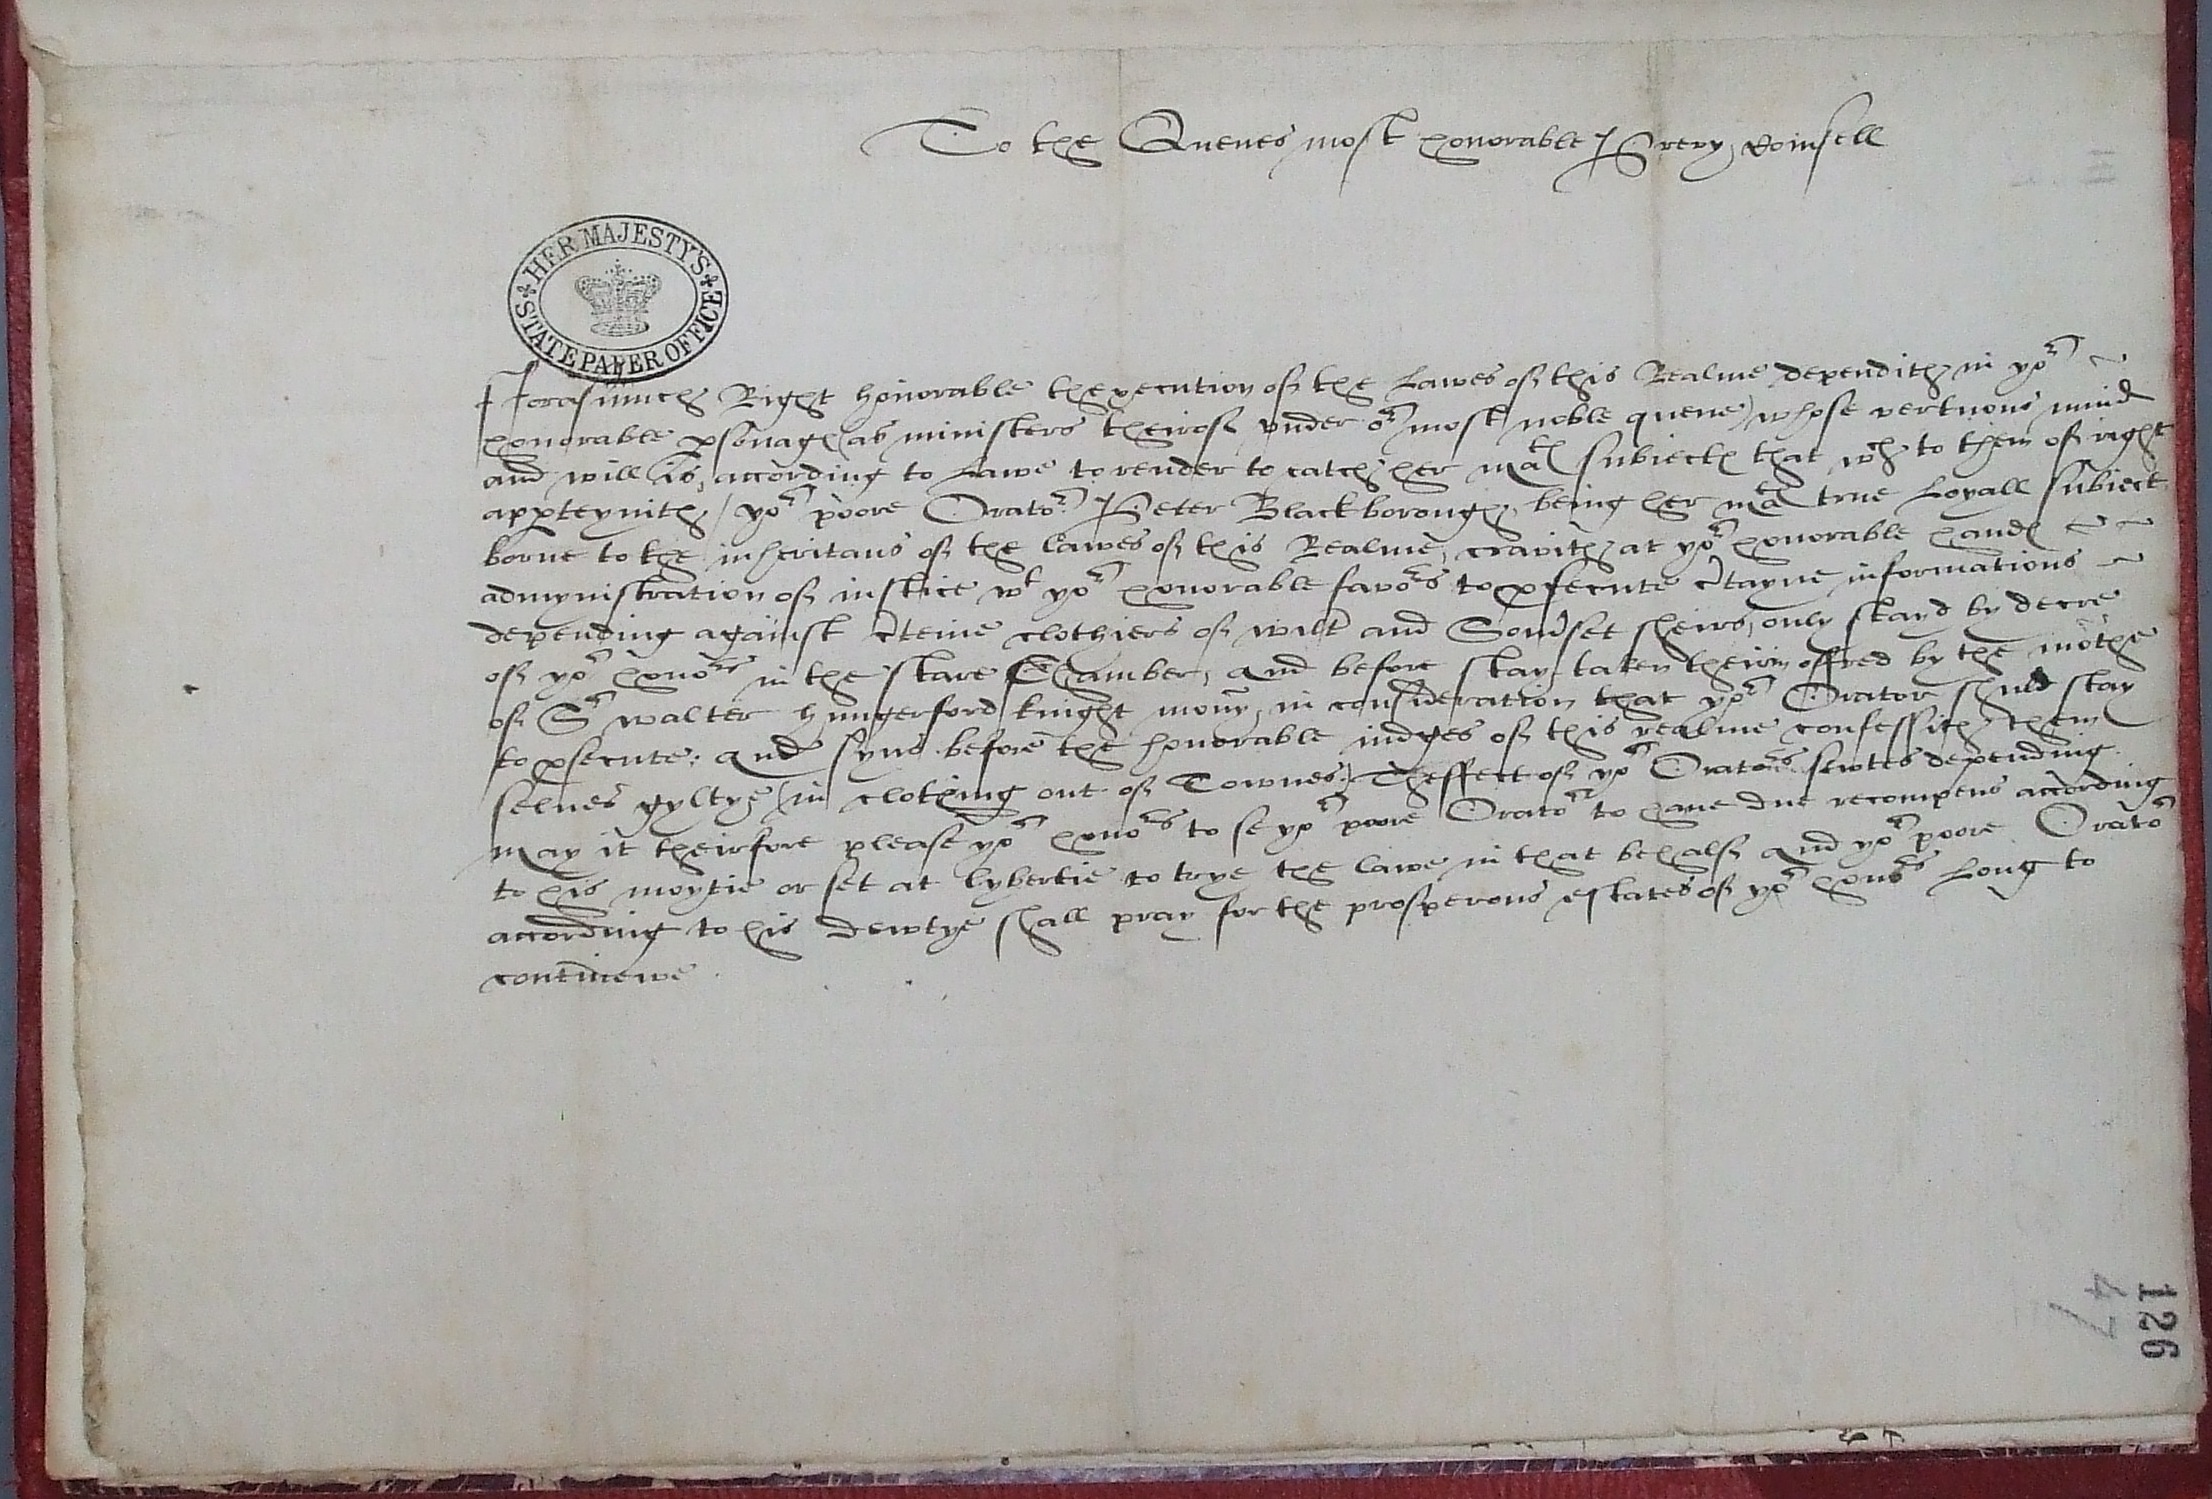 To the Quenes most honorable Prevy Coinsell
HER MAJESTY'S STATE PAPER OFFICE
Fforasmuch Right honorable thexecution of the Lawes of this Realme dependith in yor
honorable psonages (as ministers theirof under or most noble quene) whose vertuous mind
and will is, according to Lawe to render to eatch her mats subiects that wch to them of right
appteynith / yor poore Orator Peter Blackborough, being her mats true Loyall subiect
borne to the inheritans of the lawes of this Realme, cravith at yor honorable hands
admynistration of iustice wt yor honorable favors to psecute certayne informations
depending against certeine clothiers of wilt and Somerset sheirs, only stayd by decre
of yor honors in the starre Chamber, and before stay taken theirin offred by the mothe
of Sr walter Hungerford knight mony, in consideration that yor Orator shuld stay
to psecute: and syns before the honorable iudges of this realme confessith them
selues gyltye (in clothing out of Townes) Theffect of yor Orators sewtes depending.
May it theirfore please yor honors to se yor poore Orator to haue due recompens according
to his moytie or set at lybertie to trye the lawe in that behalf and yor poore Orator
according to his dewtye shall pray for the prosperous estates of yor honors Long to
continewe.
47
126